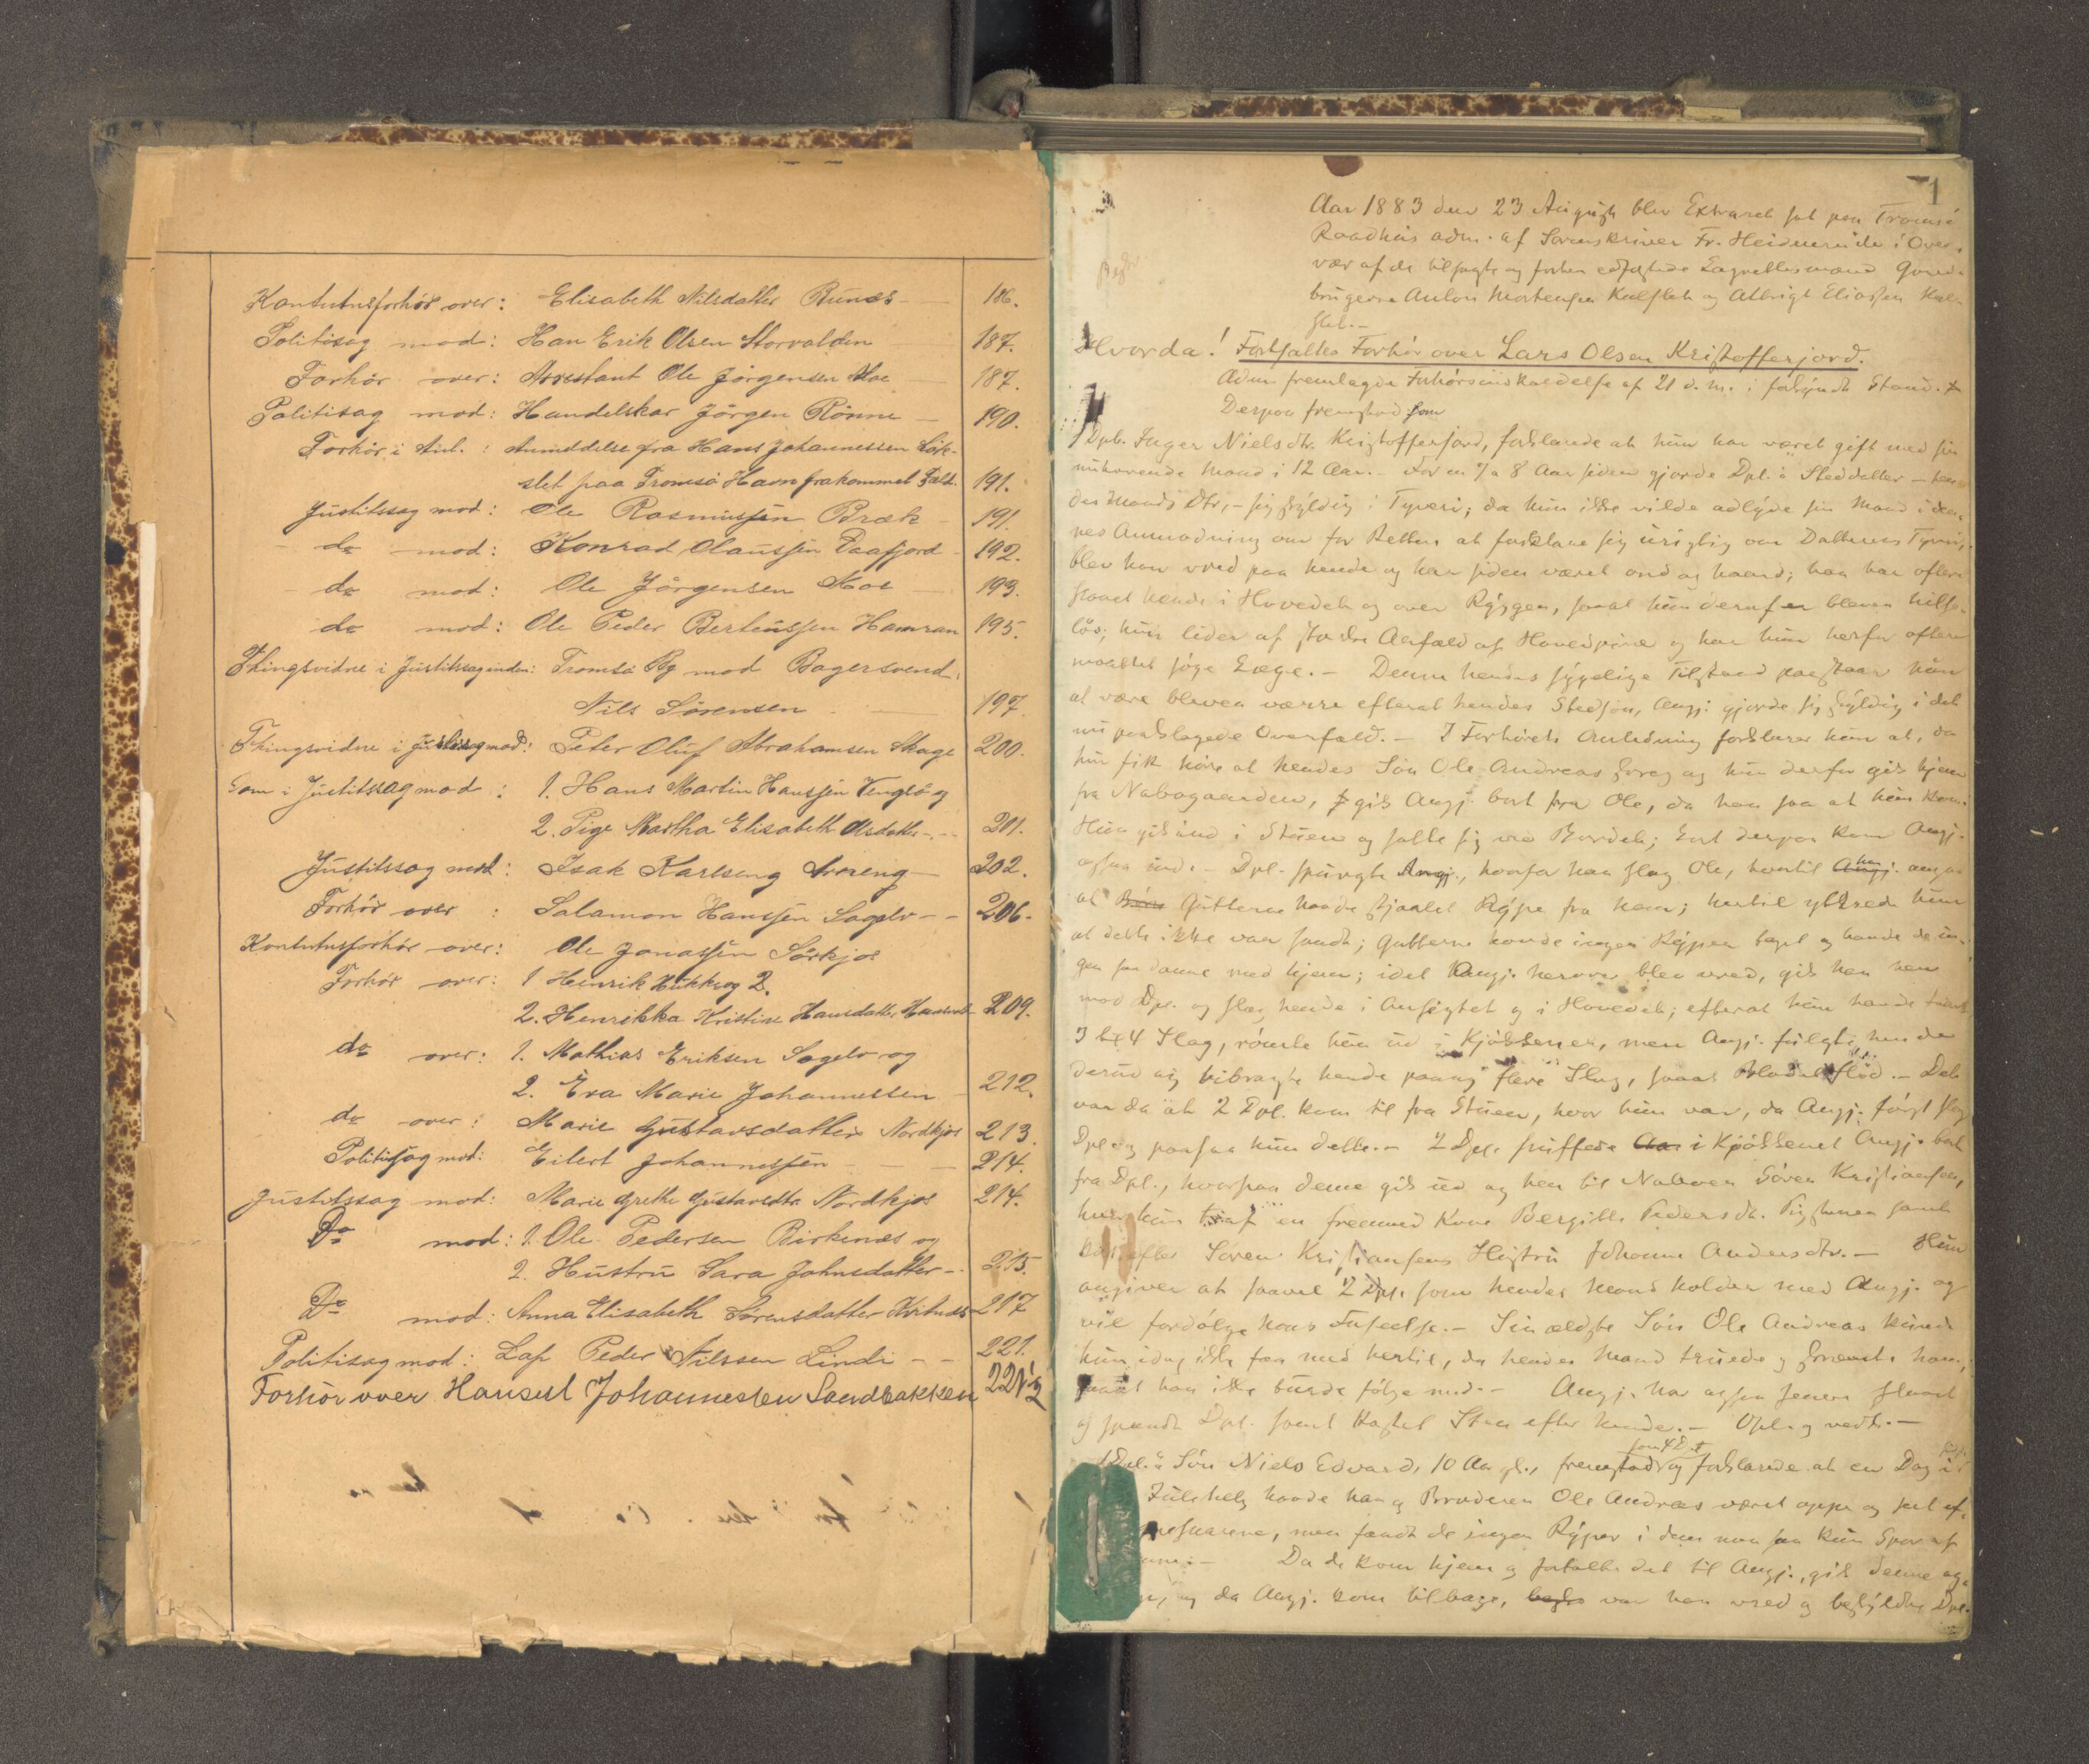 Kontutnsforhör over: Elisabeth Nilsdatter Bunes 186.
Politisag mod: Han Erik Olsen Storvolden 187.
Forhör over: Arrestant Ole Jörgensen Moe 187.
Politisag mod: Handelskar Jörgen Rönne 190.
Forhör i Anl. : Anmeldelse fra Hans Johannessen Lök-
slet paa Tromsö Havn frakommet 191.
Justitssag mod: Ole Rasmussen Bræk 191.
do mod: Konrad Olaussen Daafjord 192.
do mod: Ole Jörgensen Moe 193.
do mod: Ole Peder Berteussen Hamran 195.
Thingsvidne i Justitssaginden: Tromsö By mod Bagersvend
Nils Sörensen 197.
Thingsvidne i Justitssag mod: Peter Oluf Abrahamsen Skage 200.
Som i Justitssag mod : 1. Hans Martin Hanssen Vengsö og
2. Pige Martha Elisabeth Olsdatter 201.
Justitssag mod: Isak Karlseng Moreng 202.
Forhör over : Salamon Hanssen Sagelv 206.
Kontutnsforhör over: Ole Jonassen Sörkjos
Forhör over: 1 Henrik Hukke og 2.
2. Henrikka Kristine Hansdatter 209.
do over: 1. Mathias Eriksen Sagelv og
2. Eva Marie Johannessen 212.
do over: Marie Gustavsdatter Nordkjos 213.
Politisag mod: Eilert Johannessen 214.
Justitssag mod: Marie Grethe Gustavsdtr Nordkjos 214.
Do mod: 1. Ole Pedersen Birkenæs og
2. Hustru Sara Johnsdatter 215.
Do mod: Anna Elisabeth Sörensdatter 217
Politisag mod: Lap Peder Nilssen Lindi 221.
Forhör over Hansul Johannessen Sandbakken 221½
1
Aar 1883 den 23 August blev Extraret sat paa Tromsö
Raadhus adm. af Sorenskriver Fr. Heidenreich i Over-
vær af de tilsagte og forhen edfæstede Lagrettesmænd Gaard-
brugerne Anton Mortensen Kalslet og Albrigt Eliassen Kal-
slet.-
Hvorda! Fortsattes Forhör over Lars Olsen Kristofferjord.
Adm fremlagde Inhörsindkaldelse af 21 d. m. i forkyndt Stand.
Derpaa fremstod som
1 Dpl. Inger Nielsdtr. Kristofferjord, forklarede at hun har været gift med sin
nuhavende Mand i 12 Aar.- For en 7 a 8 Aar siden gjorde Dpl.s Steddatter -
des Mands Dtr,- sig skyldig i Tyveri; da hun ikke vilde adlyde sin Mand i den-
nes Anmodning om for Retten at forklare sig urigtig om Datterens Tyveri,
blev han vred paa hende og har siden været ond og haard; han har oftere
slaaet hende i Hovedet og over Ryggen, saaat hun deraf er bleven hilse-
lös; hun lider af Anfald af Hovedpine og har hun herfor oftere
maattet söge Læge.- Denne hendes sygelige Tilstand paastaar hun
at være bleven værre efterat hendes Stedsön, Angj. gjorde sig skyldig i det
nu paaklagede Overfald.- I Forhörets Anledning forklarer hun at, da
hun fik höre at hendes Sön Ole Andreas skreg og hun derfor gik hjem
fra Nabogaarden, gik Angj. bort fra Ole, da han saa at hun kom.
Hun gik ind i Stuen og satte sig ved Bordet; kort derpaa kom Angj.
ogsaa ind.- Dpl. spurgte Angj., hvorfor han slog Ole, hvortil han
at Gutterne havde stjaalet Rype fra ham; hertil yttrede hun
at dette ikke var sandt; Gutterne havde ingen Ryper taget og havde de in-
gen saadanne med hjem; idet Angj. herover blev vred, gik han hen
mod Dpl. og slog hende i Ansigtet og i Hovedet; efterat hun havde
3 til 4 Slag, römte hun ud i Kjökkenet, men Angj. fulgte hende
derud og tilbragte hende paany flere Slag, saaat Blodet flöd.- Det
var da at 2 Dpl. kom til fra Stuen, hvor hun var, da Angj. först slog
Dpl og paasaa hun dette.- 2 Dpl. puffede i Kjökkenet Angj. bort
fra Dpl., hvorpaa denne gik ud og hen til Naboen Sören Kristiansen,
hvor hun traf en fremmed Kone Bergitte Pedersdtr. samt
Sörens Kristiansens Hustru Johanne Andersdtr.- Hun
angiver at saavel 2 Dpl. som hendes Mand holder med Angj. og
vil fordölge hans Forseelse.- Sin ældste Sön Ole Andreas kunde
hun idag ikke faa med hertil, da hendes Mand truede og skræmte ham,
saaat han ikke turde fölge med.- Angj. har ogsaa senere slaaet
og spændt Dpl. samt kastet Sten efter hende.- Opl. og vedt.-
1 Dpl.s Sön Niels Edvard, 10 Aar gl., fremstod som 4 Dpl og forklarede at en Dag i
Julehelg havde han og Broderen Ole Andreas været oppe og set ef-
snarene, men fandt de ingen Ryper i dem men saa kun Spor af
Da de kom hjem og fortalte det til Angj., gik denne
og da Angj. kom tilbage, var han vred og beskyldte Dpl.